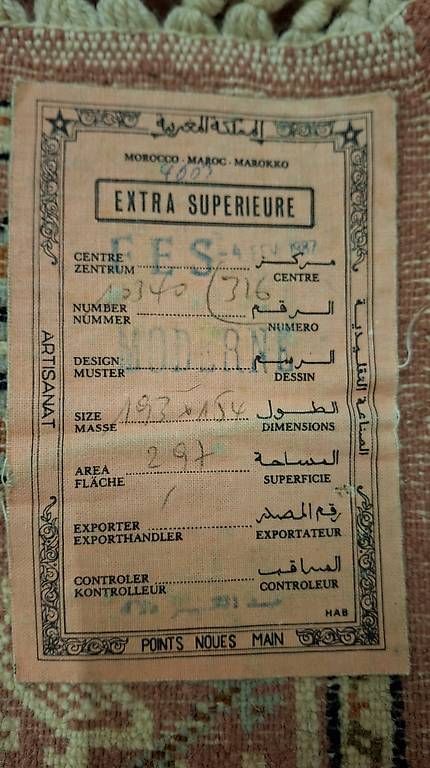 المملكة المغربية
MOROCCO - MAROC - MAROKKO
EXTRA SUPERIEURE
CENTRE
ZENTRUM
FES
مركز
CENTRE
10340 (316
NUMBER
NÜMMER
الرقم
NUMERO
MODERNE
DESIGN
MUSTER
الرسم
DESSIN
SIZE
MASSE
193 x 154
الطول
DIMENSIONS
AREA
FLÄCHE
297
المساحة
SUPERFICIE
EXPORTER
EXPORTHANDLER
رقم المصدر
EXPORTATEUR
CONTROLER
KONTROLLEUR
المراقب
CONTROLEUR
HAB
POINTS NOUES MAIN
ARTISANAT
الصناعة التقليدية